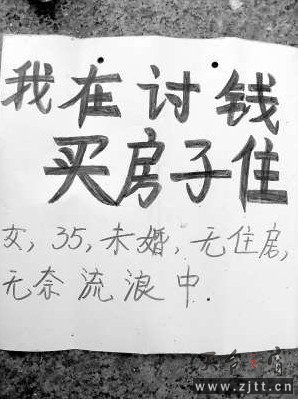 我在讨钱
买房子住
女,35,未婚,无住房,
无奈流浪中
www.zjtt.cn